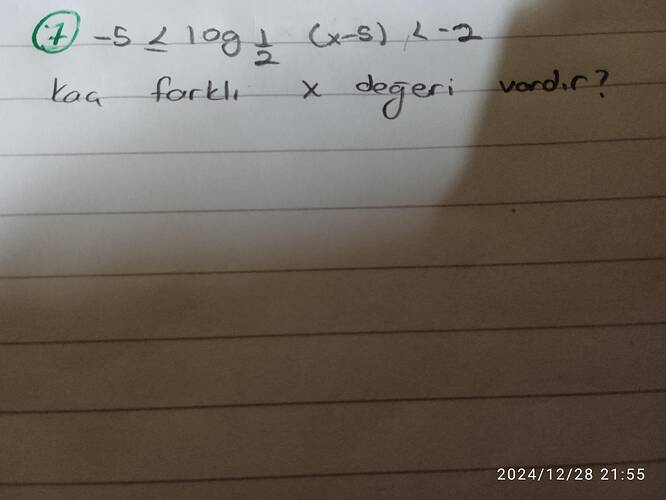 7 -5 ≤ log 1/2 (x-5) < -2
kaç farklı x değeri vardır?
2024/12/28 21:55